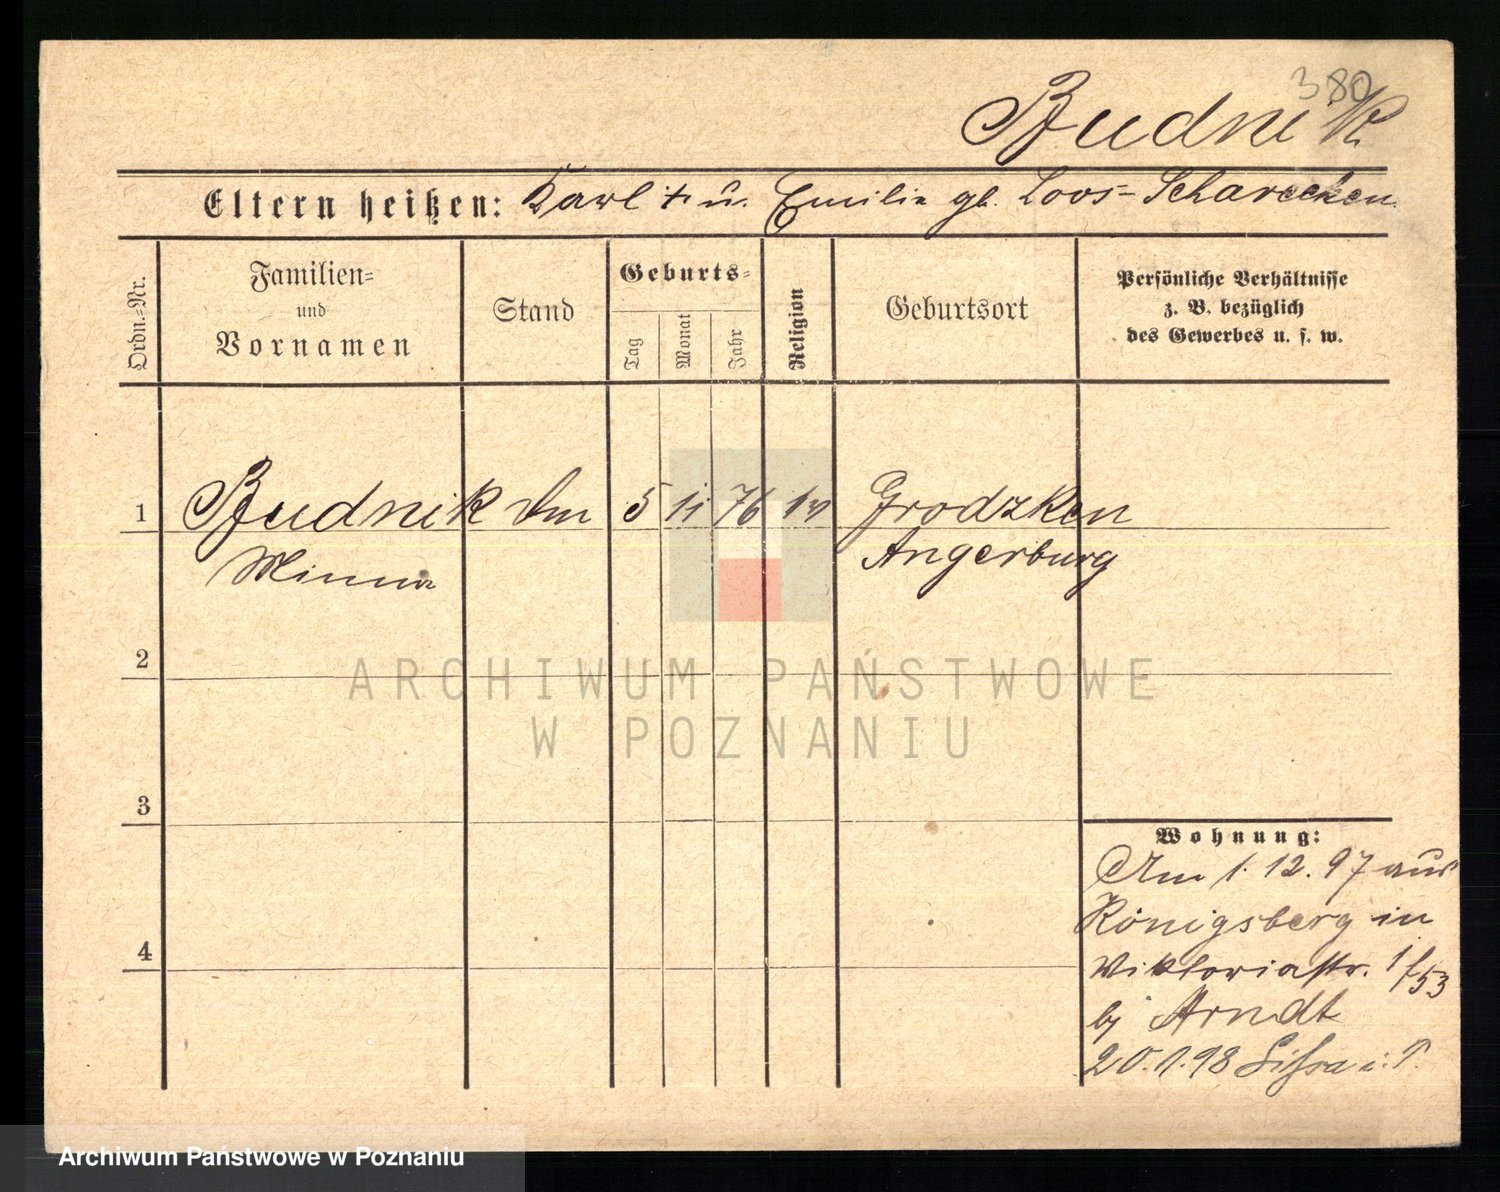 380
Budnik
Eltern heißen: Karl † u. Emilie gb. Loos-Schareeken.
Ordn.=Nr.
Familien=
und
Vornamen
Stand
Geburts=
Tag
Monat
Jahr
Religion
Geburtsort
Persönliche Verhältnisse
z. B. bezüglich
des Gewerbes u. s. w.
1 Budnik 5 11 76 ev Grodzken
Minna Angerburg
2
3
4
ARCHIWUM PAŃSTWOWE
W POZNANIU
Wohnung:
Am 1. 12. 97 aus
Königsberg in
Viktoriastr. 1/53
bj Arndt
20.1.98 i. P.
Archiwum Państwowe w Poznaniu